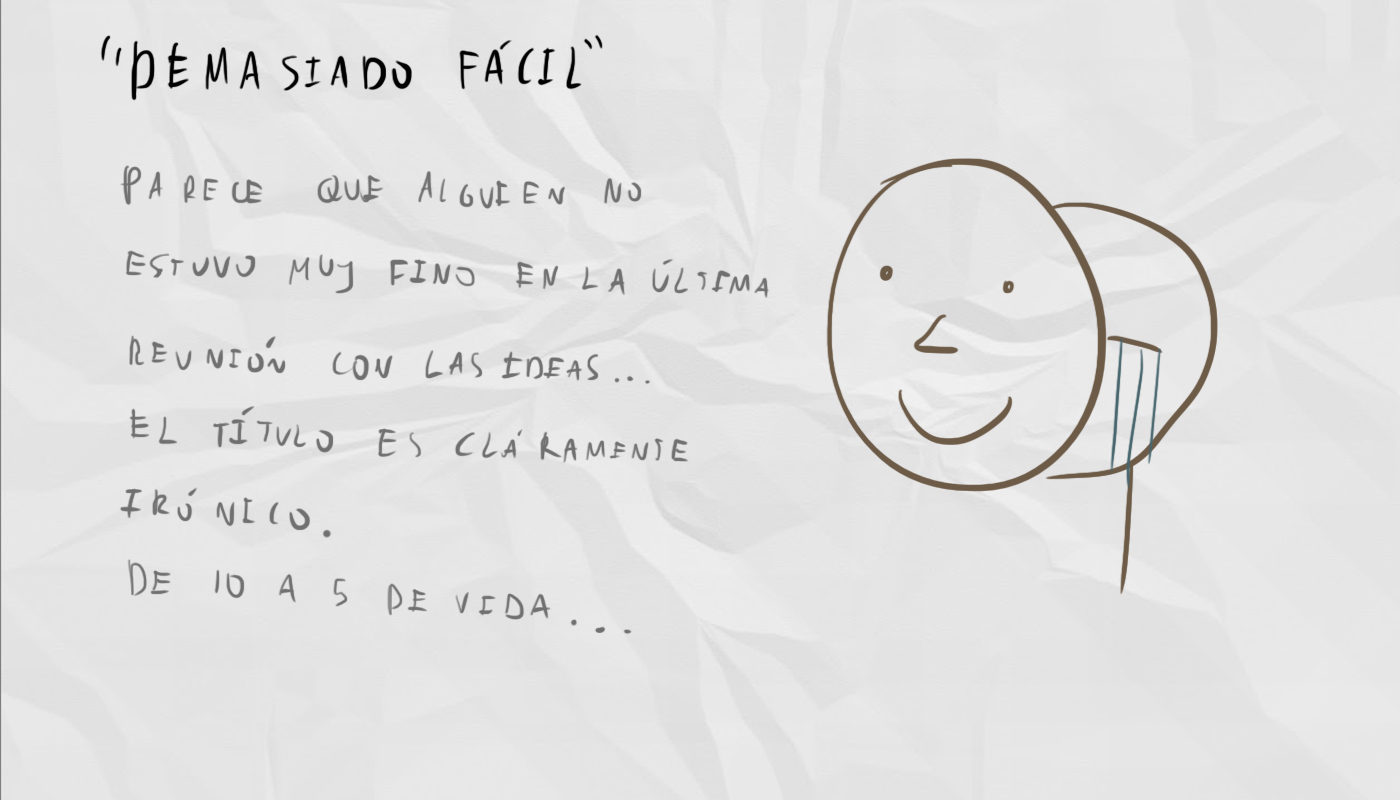 "DEMASIADO FÁCIL"
PARECE QUE ALGUIEN NO
ESTUVO MUY FINO EN LA ÚLTIMA
REUNIÓN CON LAS IDEAS...
EL TÍTULO ES CLARAMENTE
IRÓNICO.
DE 10 A 5 DE VIDA...